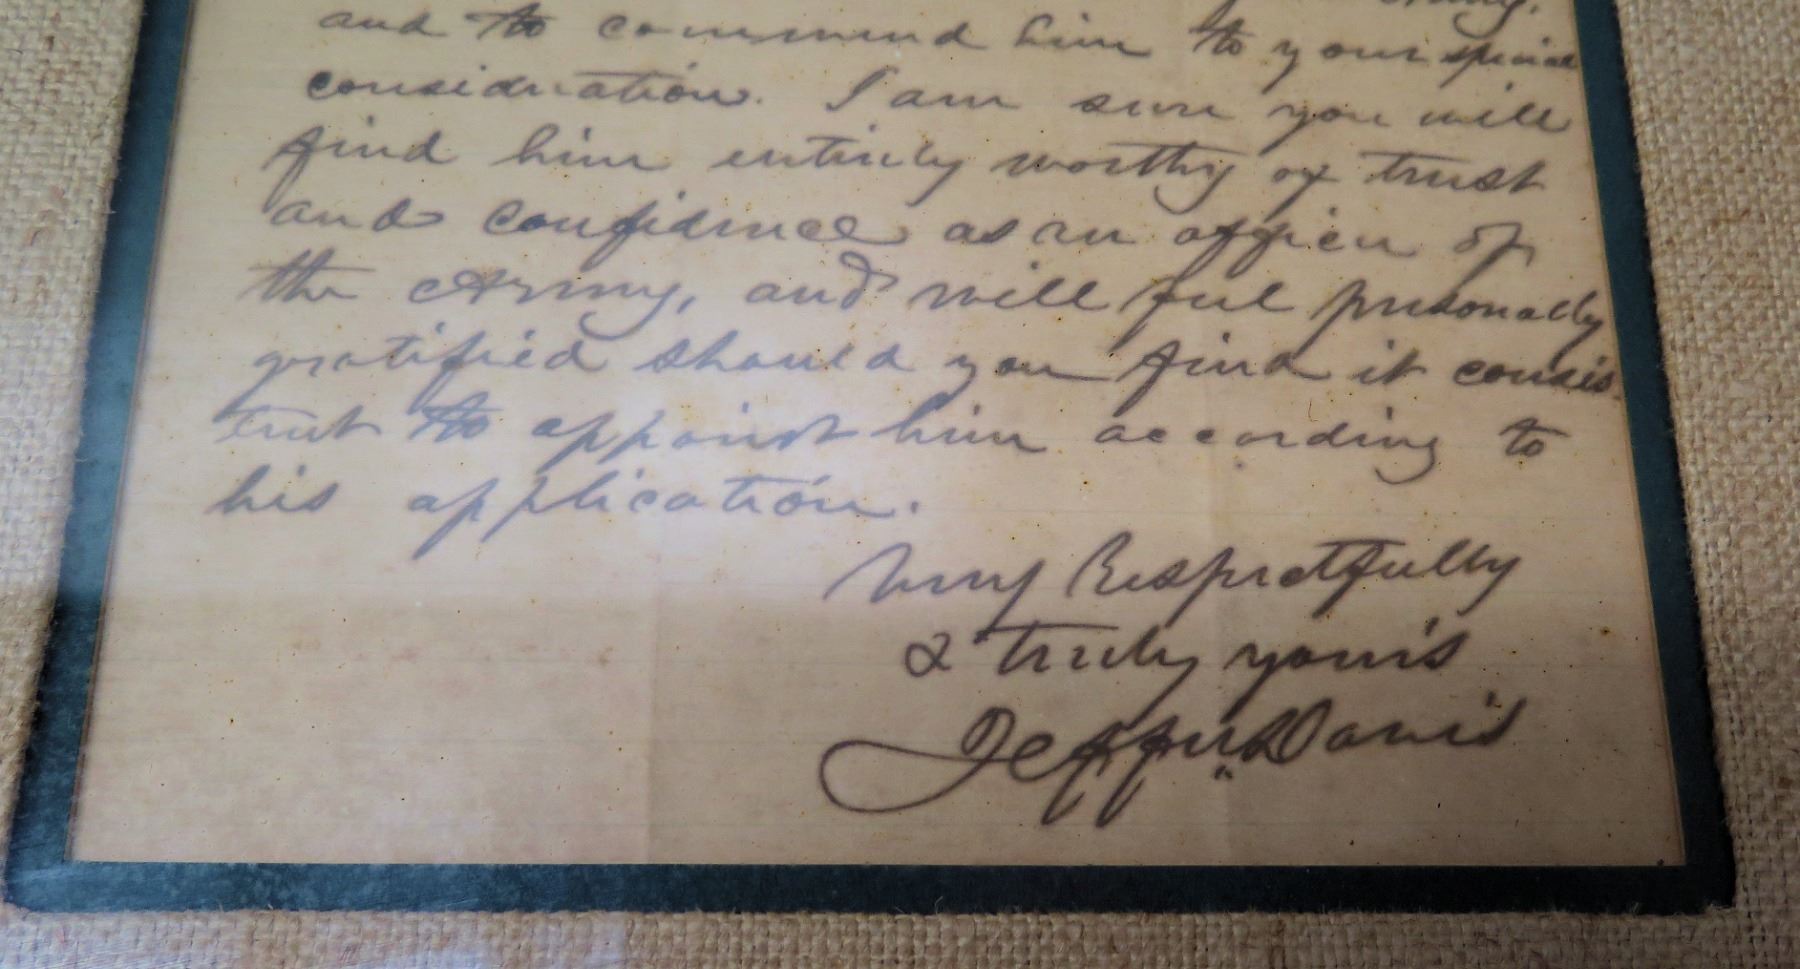 Army.
and to commend him to your special
consideration. I am sure you will
find him entirely worthy of trust
and confidence as an officer of
the Army, and will feel personally
gratified should you find it consis
tent to appoint him according to
his application.
Very Respectfully
& truly yours
Jeffer. Davis